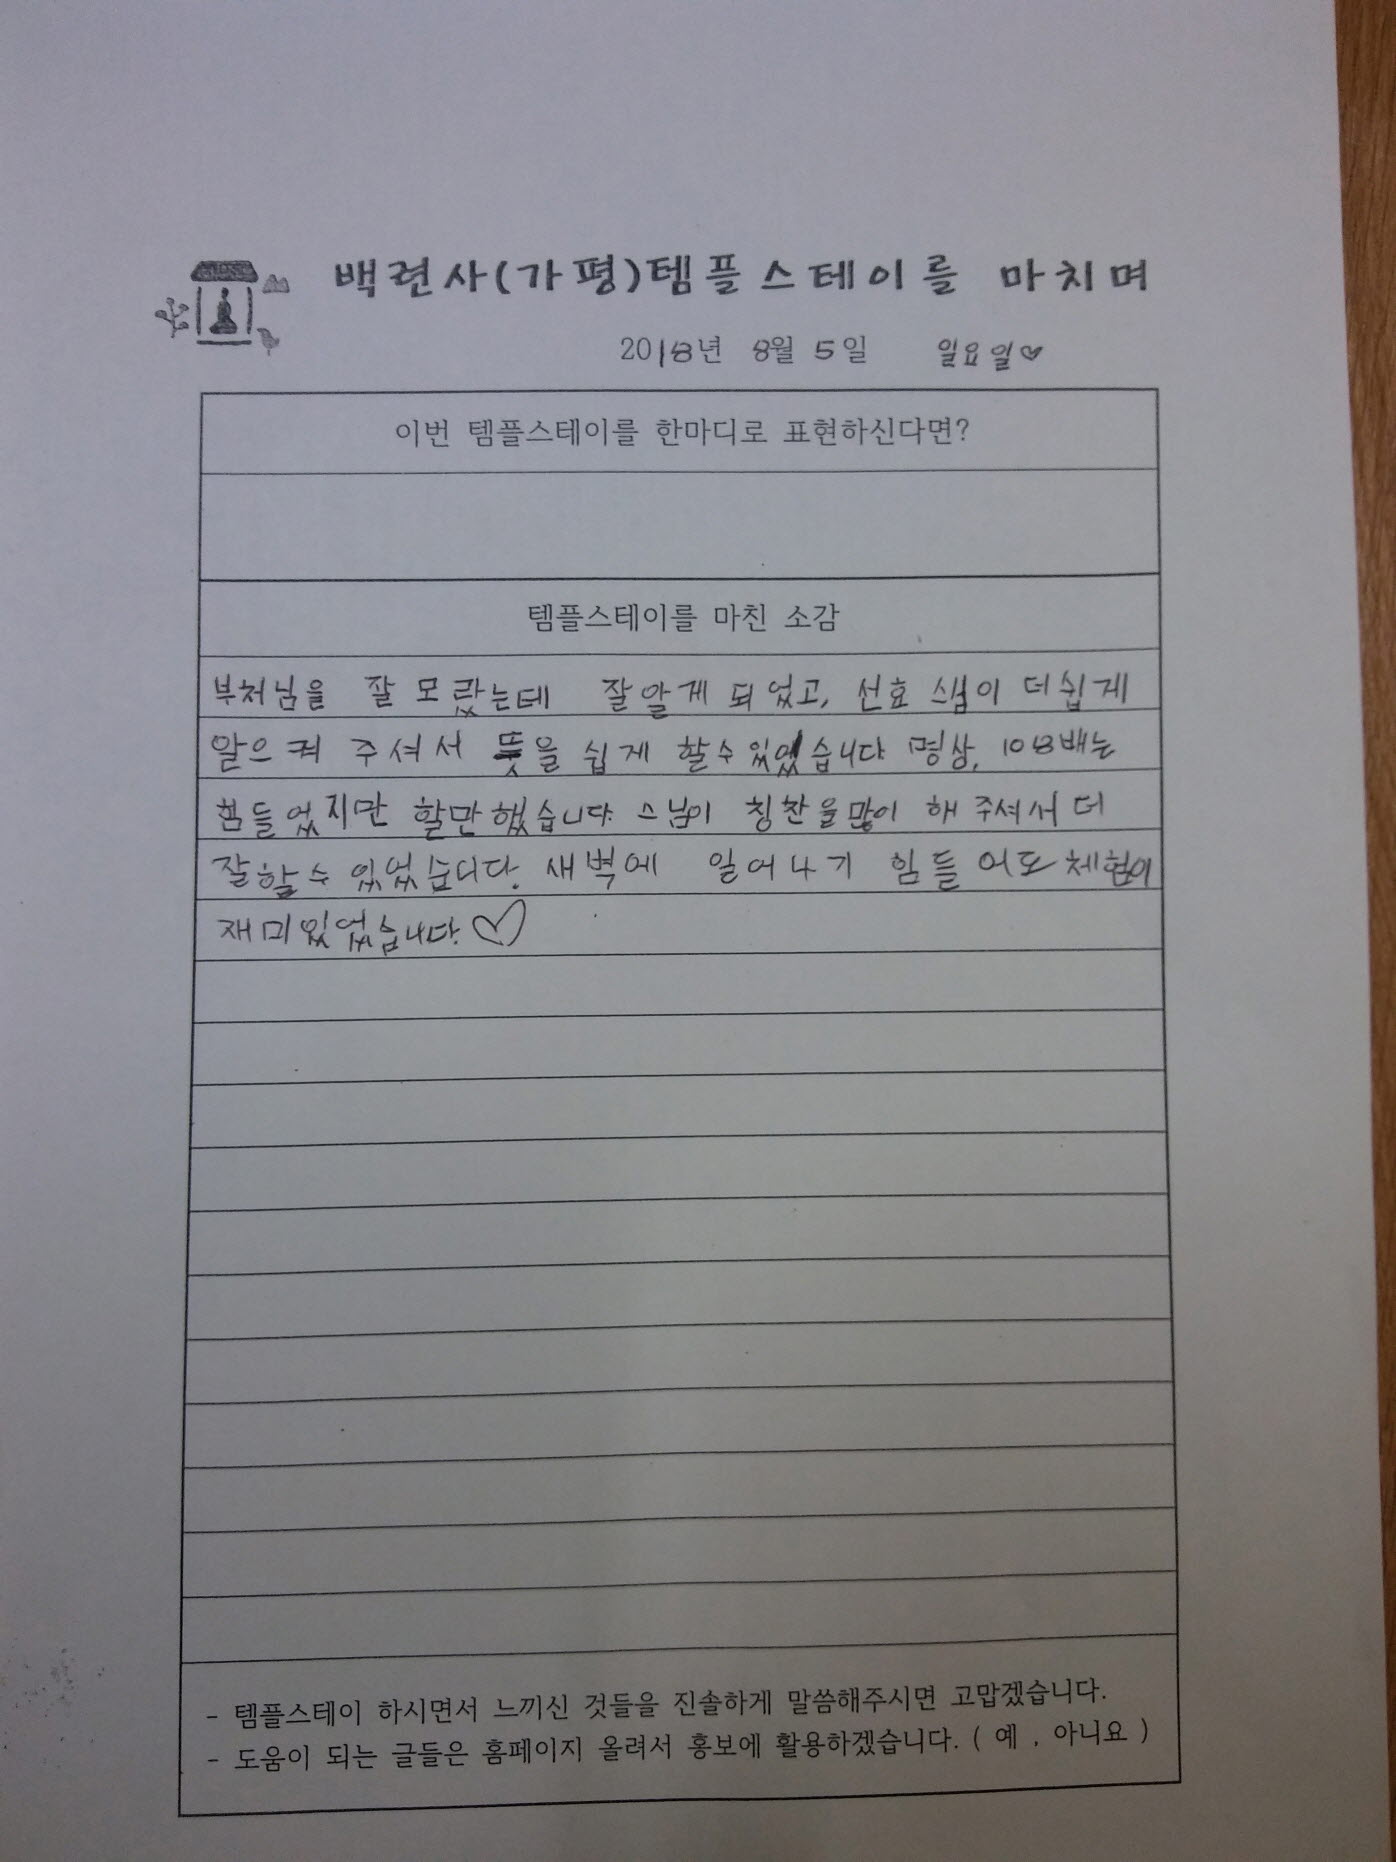 백련사(가평)템플스테이를 마치며
2018년 8월 5일 일요일♡
이번 템플스테이를 한마디로 표현하신다면?
템플스테이를 마친 소감
부처님을 잘 모랐는데 잘알게 되었고, 선효 스님이 더쉽게
알으켜 주셔서 뜻을 쉽게 할수있었습니다 명상, 108배는
힘들었지만 할만했습니다. 스님이 칭찬을많이 해주셔서 더
잘할수 있었습니다. 새벽에 일어나기 힘들어도 체험이
재미있었습니다.♡
- 템플스테이 하시면서 느끼신 것들을 진솔하게 말씀해주시면 고맙겠습니다.
- 도움이 되는 글들은 홈페이지 올려서 홍보에 활용하겠습니다. ( 예 , 아니요 )